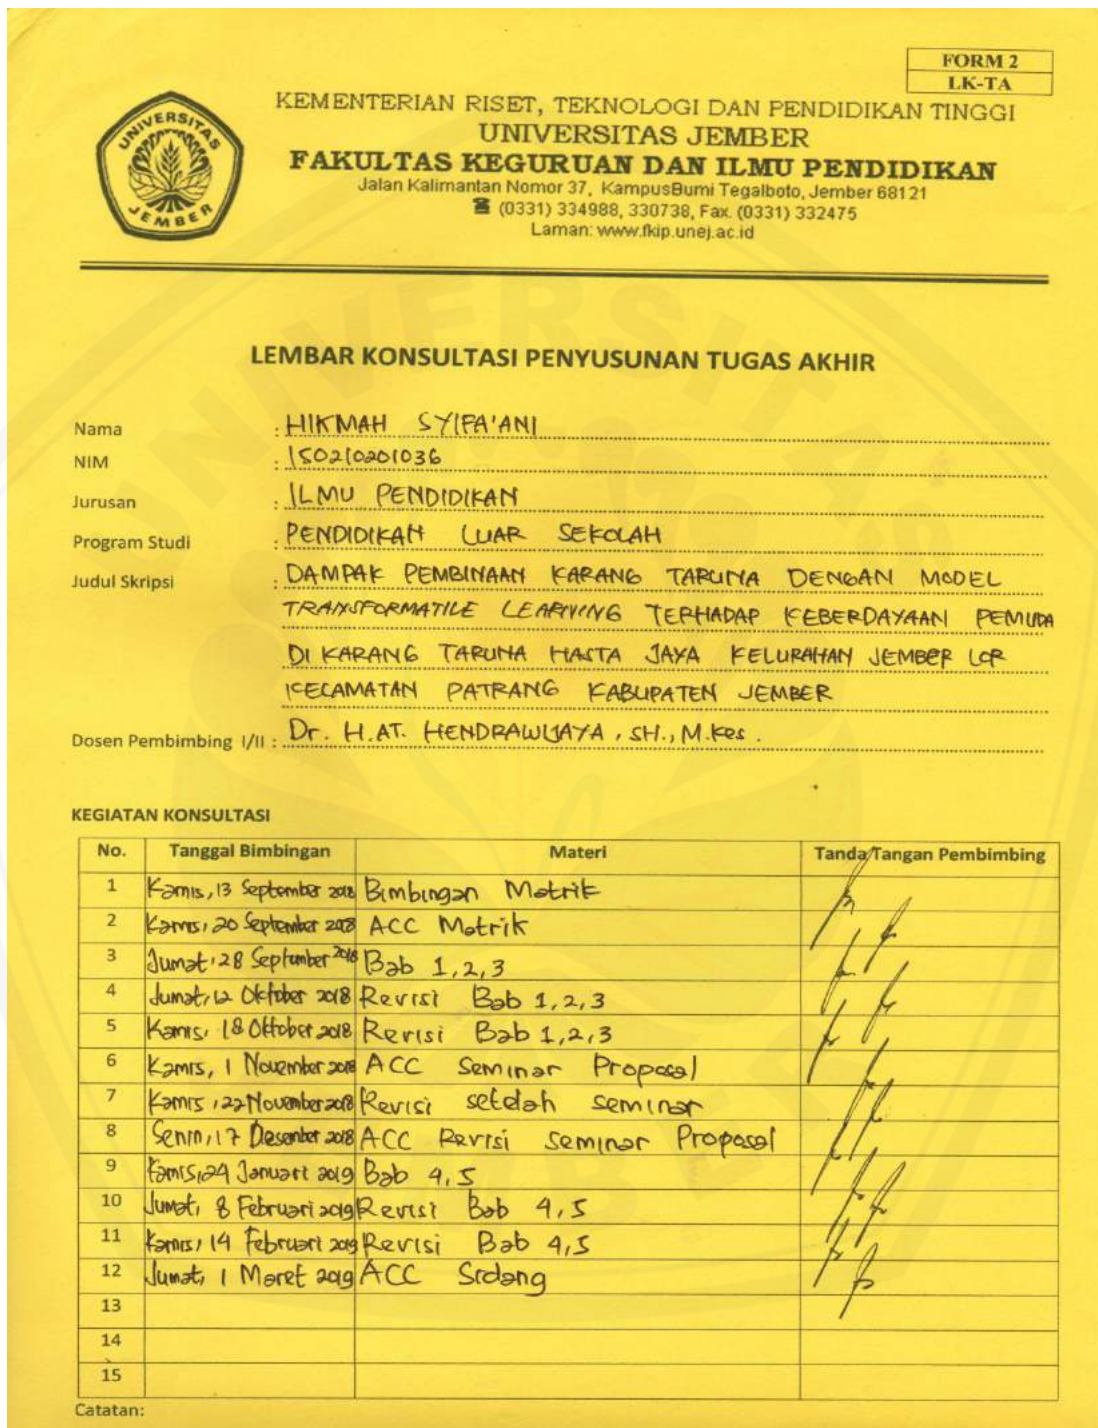 FORM 2
LK-TA
UNIVERSITAS
JEMBER
KEMENTERIAN RISET, TEKNOLOGI DAN PENDIDIKAN TINGGI
UNIVERSITAS JEMBER
FAKULTAS KEGURUAN DAN ILMU PENDIDIKAN
Jalan Kalimantan Nomor 37, KampusBumi Tegalboto, Jember 68121
☎ (0331) 334988, 330738, Fax. (0331) 332475
Laman: www.fkip.unej.ac.id
LEMBAR KONSULTASI PENYUSUNAN TUGAS AKHIR
Nama : HIKMAH SYIFA'ANI
NIM : 150210201036
Jurusan : ILMU PENDIDIKAN
Program Studi : PENDIDIKAN LUAR SEKOLAH
Judul Skripsi : DAMPAK PEMBINAAN KARANG TARUNA DENGAN MODEL
TRANSFORMATILE LEARNING TERHADAP KEBERDAYAAN PEMUDA
DI KARANG TARUNA HASTA JAYA KELURAHAN JEMBER LOR
KECAMATAN PATRANG KABUPATEN JEMBER
Dosen Pembimbing I/II : Dr. H.AT. HENDRAWIJAYA, SH., M.Kes.
KEGIATAN KONSULTASI
No. Tanggal Bimbingan Materi Tanda Tangan Pembimbing
1 Kamis, 13 September 2018 Bimbingan Matrik
2 Kamis, 20 September 2018 ACC Matrik
3 Jumat, 28 September 2018 Bab 1,2,3
4 Jumat, 12 Oktober 2018 Revisi Bab 1,2,3
5 Kamis, 18 Oktober 2018 Revisi Bab 1,2,3
6 Kamis, 1 November 2018 ACC Seminar Proposal
7 Kamis, 22 November 2018 Revisi setelah seminar
8 Senin, 17 Desember 2018 ACC Revisi seminar Proposal
9 Kamis, 24 Januari 2019 Bab 4,5
10 Jumat, 8 Februari 2019 Revisi Bab 4,5
11 Kamis, 14 Februari 2019 Revisi Bab 4,5
12 Jumat, 1 Maret 2019 ACC Sidang
13
14
15
Catatan: